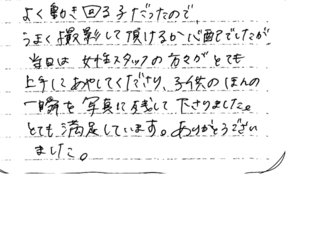 よく動き回る子だったので、
うまく撮影して頂けるか心配でしたが、
当日は女性スタッフの方々がとても
上手にあやしてくださり、子供のほんの
一瞬を写真に残して下さりました。
とても満足しています。ありがとうござい
ました。